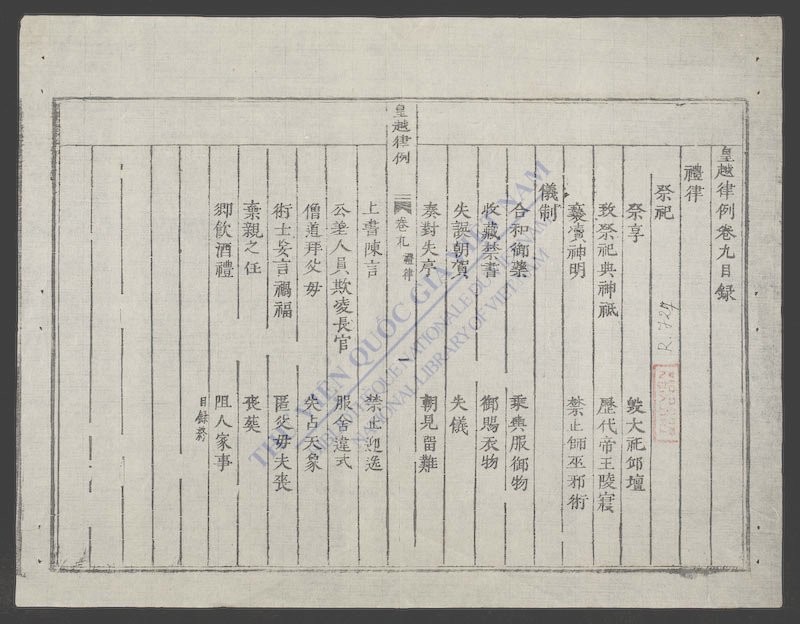 皇越律例卷九目録
禮律
祭祀
祭享　毀大祀邱壇
致祭祀典神祗　歷代帝王陵寢
褻瀆神明　禁止師巫邪術
儀制
合和御藥　乘輿服御物
收藏禁書　御賜衣物
失誤朝賀　失儀
奏對失序　朝見留難
皇越律例　卷九　禮律　一
上書陳言　禁止迎送
公差人員欺凌長官　服舍違式
僧道拜父母　失占天象
術士妄言禍福　匿父母夫喪
棄親之任　喪葬
鄉飲酒禮　阻人家事
目録終
R. 729
THƯ VIỆN QUỐC GIA VIỆT NAM
BIBLIOTHÈQUE NATIONALE DU VIETNAM
NATIONAL LIBRARY OF VIETNAM